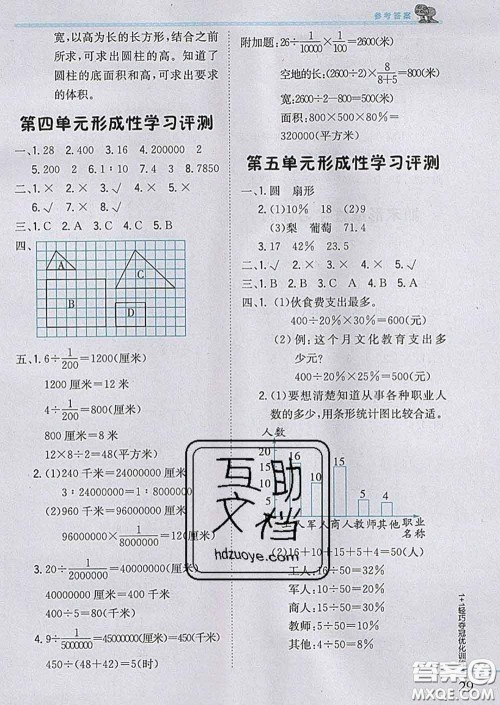 参考答案
宽,以高为长的长方形,结合之前
所求,可求出圆柱的高。知道了
圆柱的底面积和高,可求出圆柱
的体积。
第四单元形成性学习评测
一、1.28 2.400 3.16 4.200000 2
5.200 6.115 7.3 8.7850
二、1.√ 2.× 3.√ 4.× 5.×
6.× 7.√ 8.×
三、1.C 2.B 3.A 4.C 5.B
四、
A
B
C
D
五、1.6÷1/200=1200(厘米)
1200厘米=12米
4÷1/200=800(厘米)
800厘米=8米
12×8÷2=48(平方米)
2.(1)240千米=24000000厘米
3:24000000=1:8000000
(2)960千米=96000000厘米
96000000×1/8000000=12(厘米)
3.20÷1/2000000=40000000(厘米)
40000000厘米=400千米
4.9÷1/5000000=45000000(厘米)
45000000厘米=450千米
450÷(48+42)=5(时)
附加题:26÷1/10000×1/100=2600(米)
空地的长:(2600÷2)×8/(8+5)=800(米)
宽:2600÷2-800=500(米)
面积:800×500×80%=
320000(平方米)
第五单元形成性学习评测
一、1.圆 扇形
2.(1)10% 18 (2)9
(3)梨 葡萄 7.5
3.17 42% 23.5
二、1.× 2.√ 3.√ 4.√
三、1.C 2.A 3.B 4.B 5.A
四、1.(1)伙食费支出最多。
400÷20%×30%=600(元)
(2)例:这个月文化教育支出多
少元?
400÷20%×25%=500(元)
2.(1)要想清楚知道从事各种职业人
数的多少,用条形统计图比较合适。
人数
20
15
16
10
15
5
4
工人 军人 商人 教师 其他 职业
名称
(2)16+10+15+5+4=50(人)
工人:16÷50=32%
军人:10÷50=20%
商人:15÷50=30%
教师:5÷50=10%
其他:4÷50=8%
1+1轻巧夺冠优化训
29
互助
文档
hdzuoye.com
答案圈
MXQE.COM